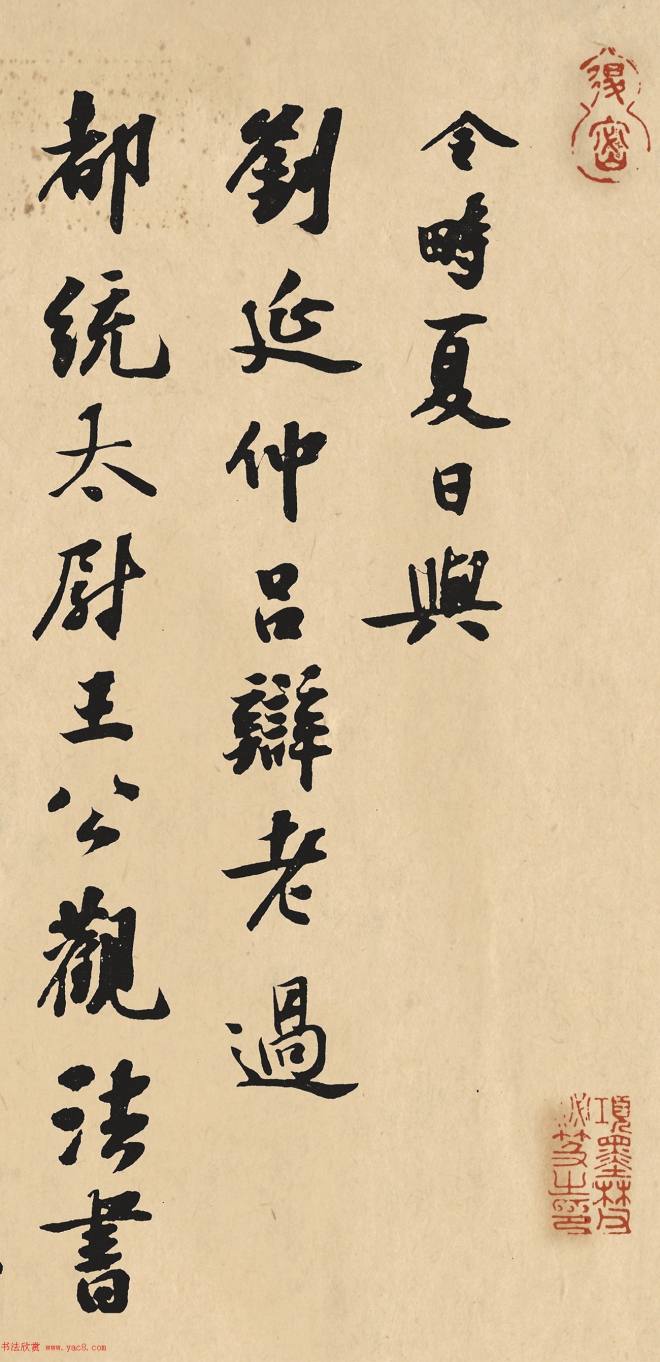 仝畤夏日與
劉延仲吕辯老過
都統太尉王公觀法書
項墨林父
祕笈之印
书法欣赏 www.yac8.com